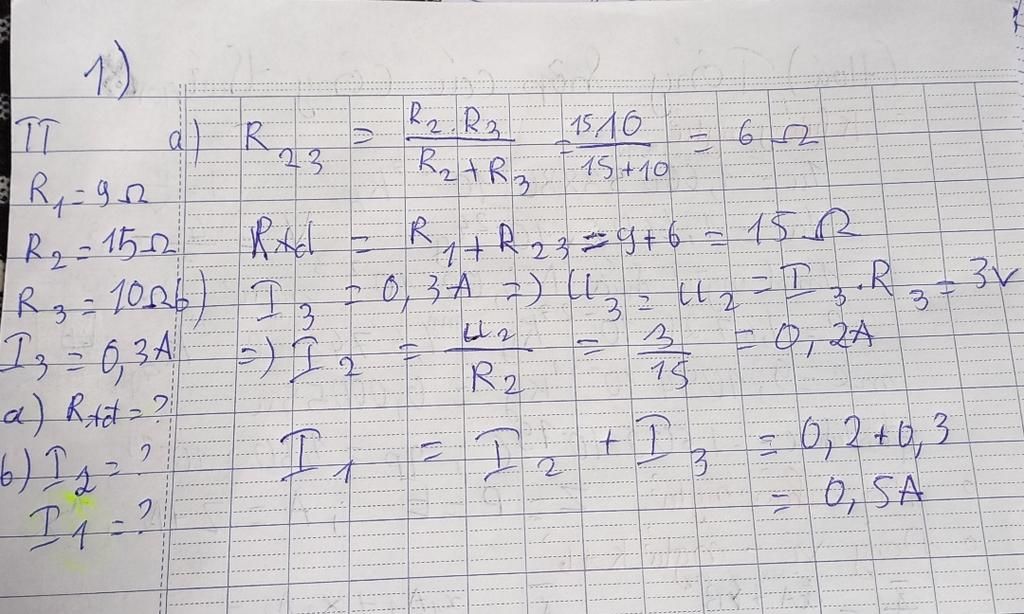 1)
TT
R1 = 9Ω
R2 = 15Ω
R3 = 10Ω
I3 = 0,3A
a) Rtđ = ?
b) I2 = ?
I1 = ?
a) R23 = R2 . R3 / R2 + R3 = 15.10 / 15+10 = 6 Ω
Rtđ = R1 + R23 = 9+6 = 15 Ω
b) I3 = 0,3A =) U3 = U2 = I3 . R3 = 3V
=) I2 = U2 / R2 = 3 / 15 = 0,2A
I1 = I2 + I3 = 0,2+0,3
= 0,5A